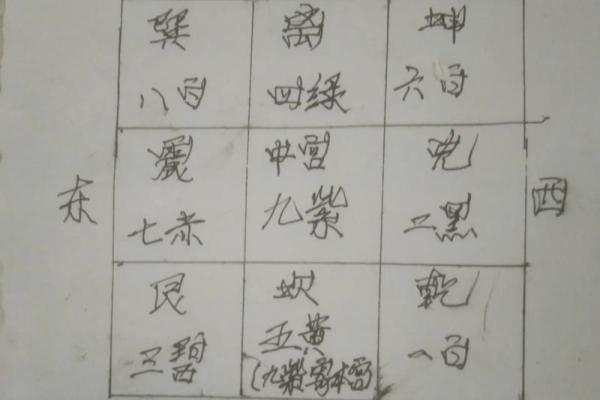 巽 离 坤
八白 四绿 六白
震 中宫 兑
东 七赤 九紫 二黑 西
艮 坎 乾
三碧 五黄 一白
(九紫寄本宫)